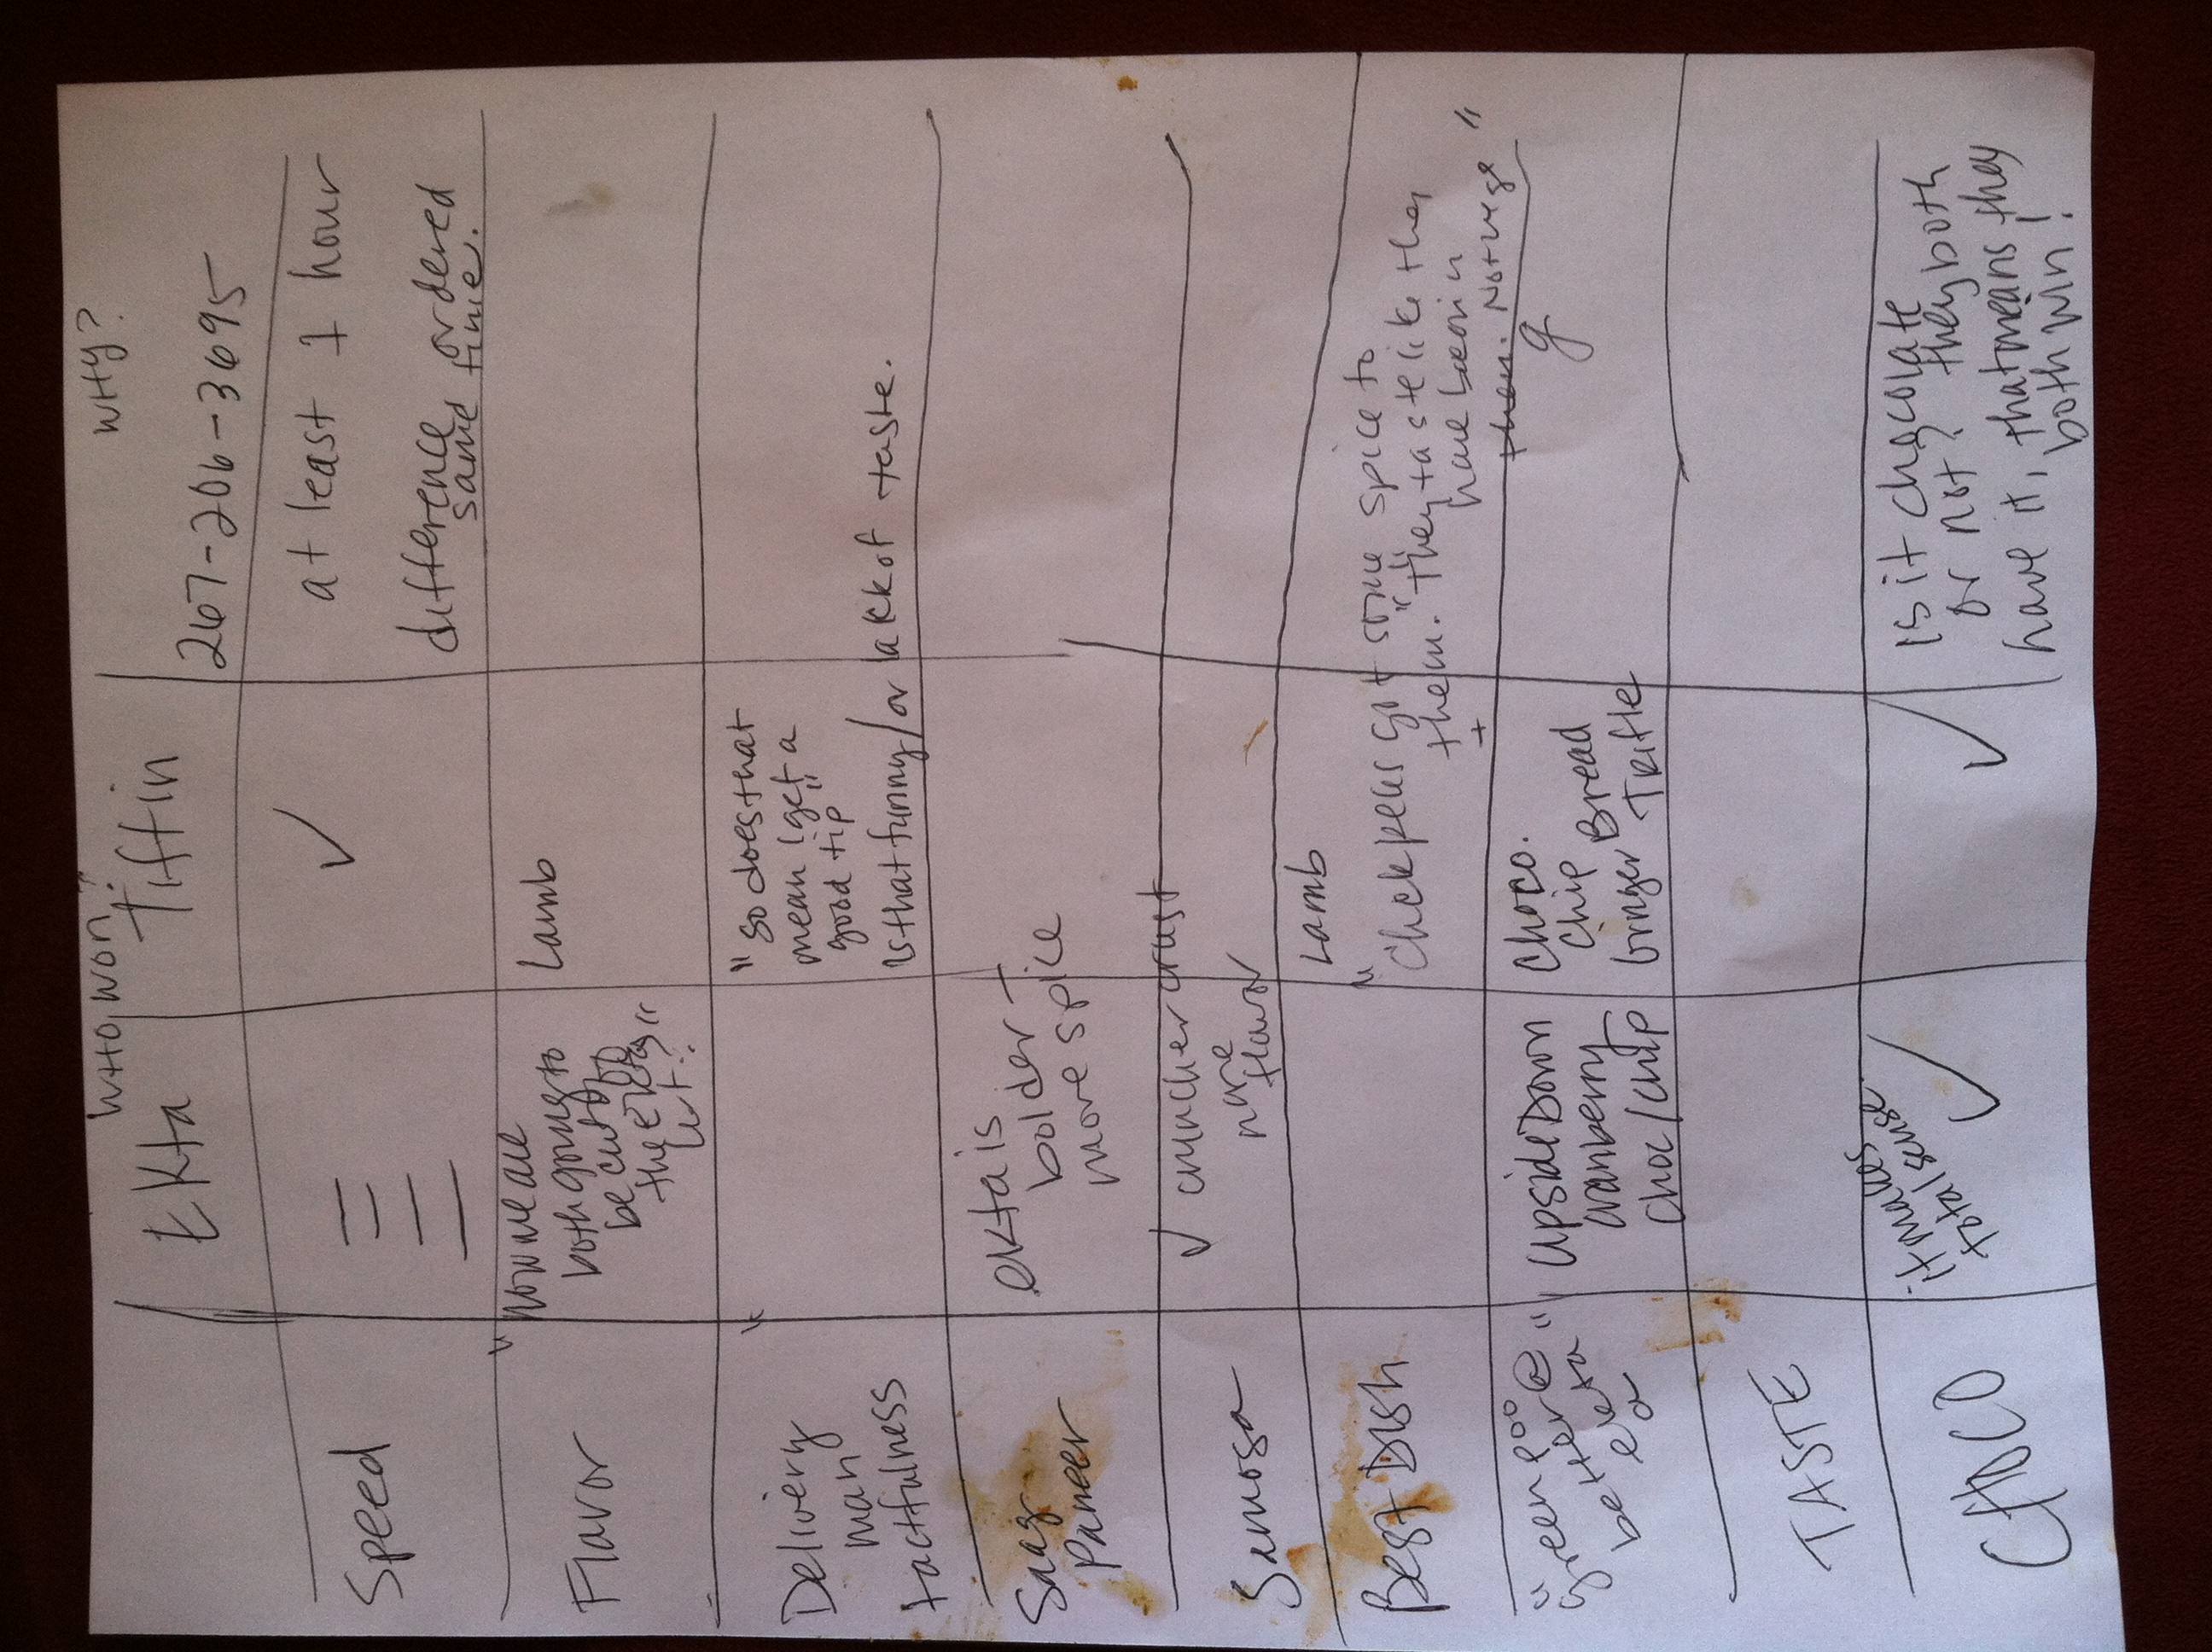 WHO WON? WHY?
Ekta Tiffin 267-206-3695
Speed ✓ at least 1 hour
difference ordered
same time.
Flavor
"now we are
both going to
be cut off
the ekta
list."
Lamb
Delivery
man
tactfulness
"so does that
mean I get a
good tip"
is that funny/or lack of taste.
Saag
Paneer
ekta is
bolder +
more spice
Samosa
✓ cruncher crust
more
flavor
Best Dish
Lamb
"chickpeas got some spice to
them." "they taste like they
+ have been in
them. Not veg"
g
"green
better @
better
Upside Down
cranberry
choc/chip
Choco.
Chip
Ginger Bread
Trifle
TASTE
CHOCO
it makes
total sense
✓
✓
Is it chocolate
or not? they both
have it, that means they
both win!